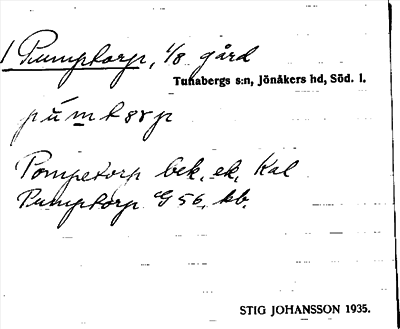 1 Pumptorp, 1/8 gård
Tunabergs s:n, Jönåkers hd, Söd. l.
Pompetorp bek. ek. Kal
Pumptorp G 56. kb.
STIG JOHANSSON 1935.